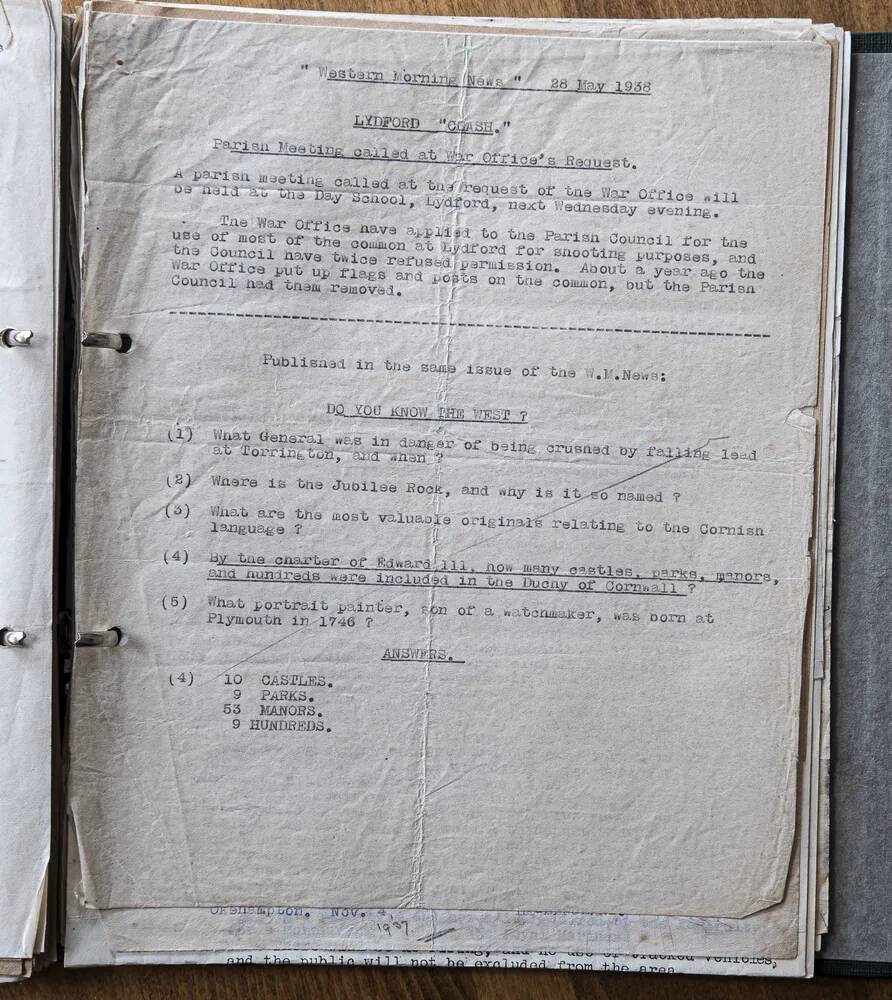 " Western Morning News "   28 May 1938
LYDFORD "CLASH."
Parish Meeting called at War Office's Request.
A parish meeting called at the request of the War Office will
be held at the Day School, Lydford, next Wednesday evening.
The War Office have applied to the Parish Council for the
use of most of the common at Lydford for shooting purposes, and
the Council have twice refused permission. About a year ago the
War Office put up flags and posts on the common, but the Parish
Council had them removed.
Published in the same issue of the W.M.News:
DO YOU KNOW THE WEST ?
(1) What General was in danger of being crushed by falling lead
at Torrington, and when ?
(2) Where is the Jubilee Rock, and why is it so named ?
(3) What are the most valuable originals relating to the Cornish
language ?
(4) By the charter of Edward 111, how many castles, parks, manors,
and hundreds were included in the Duchy of Cornwall ?
(5) What portrait painter, son of a watchmaker, was born at
Plymouth in 1746 ?
ANSWERS.
(4) 10 CASTLES.
9 PARKS.
53 MANORS.
9 HUNDREDS.
Okehampton. Nov. 4,
1937
and no use of tracked vehicles,
and the public will not be excluded from the area